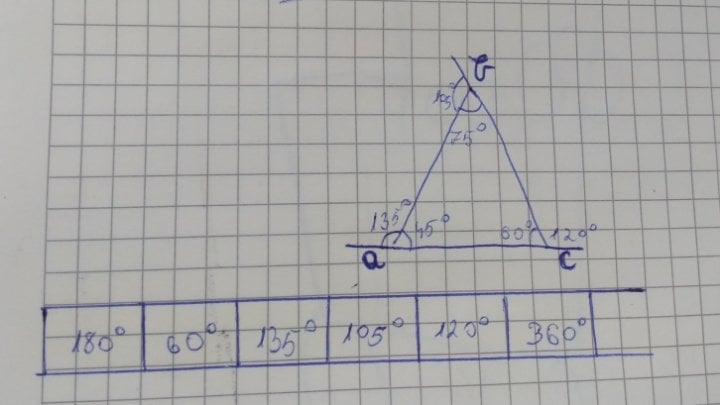 B
105°
75°
135° 45° 60° 120°
a c
180° 60° 135° 105° 120° 360°